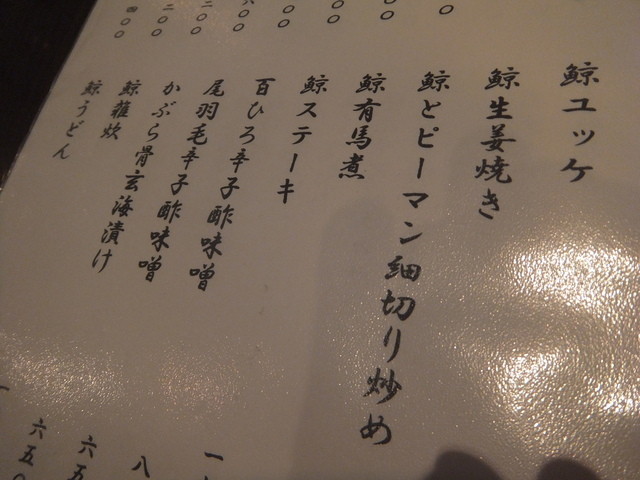 鯨ユッケ
鯨生姜焼き
鯨とピーマン細切り炒め
鯨有馬煮
鯨ステーキ
百ひろ辛子酢味噌
尾羽毛辛子酢味噌
かぶら骨玄海漬け
鯨雑炊
鯨うどん
〇
〇〇
〇〇
〇〇
〇〇
二〇〇
二〇〇
四〇〇
八
六五
六五〇